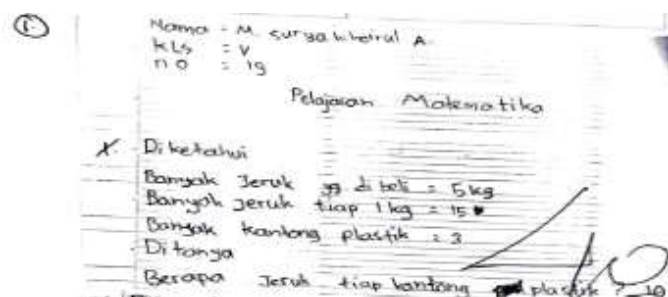 ①
Nama = M. surya khoirul A.
kls = V
no = 19
Pelajaran Matematika
1. Diketahui
Banyak Jeruk yg di beli = 5 kg
Banyak jeruk tiap 1 kg = 15
Banyak kantong plastik = 3
Ditanya
Berapa Jeruk tiap kantong plastik ? 10